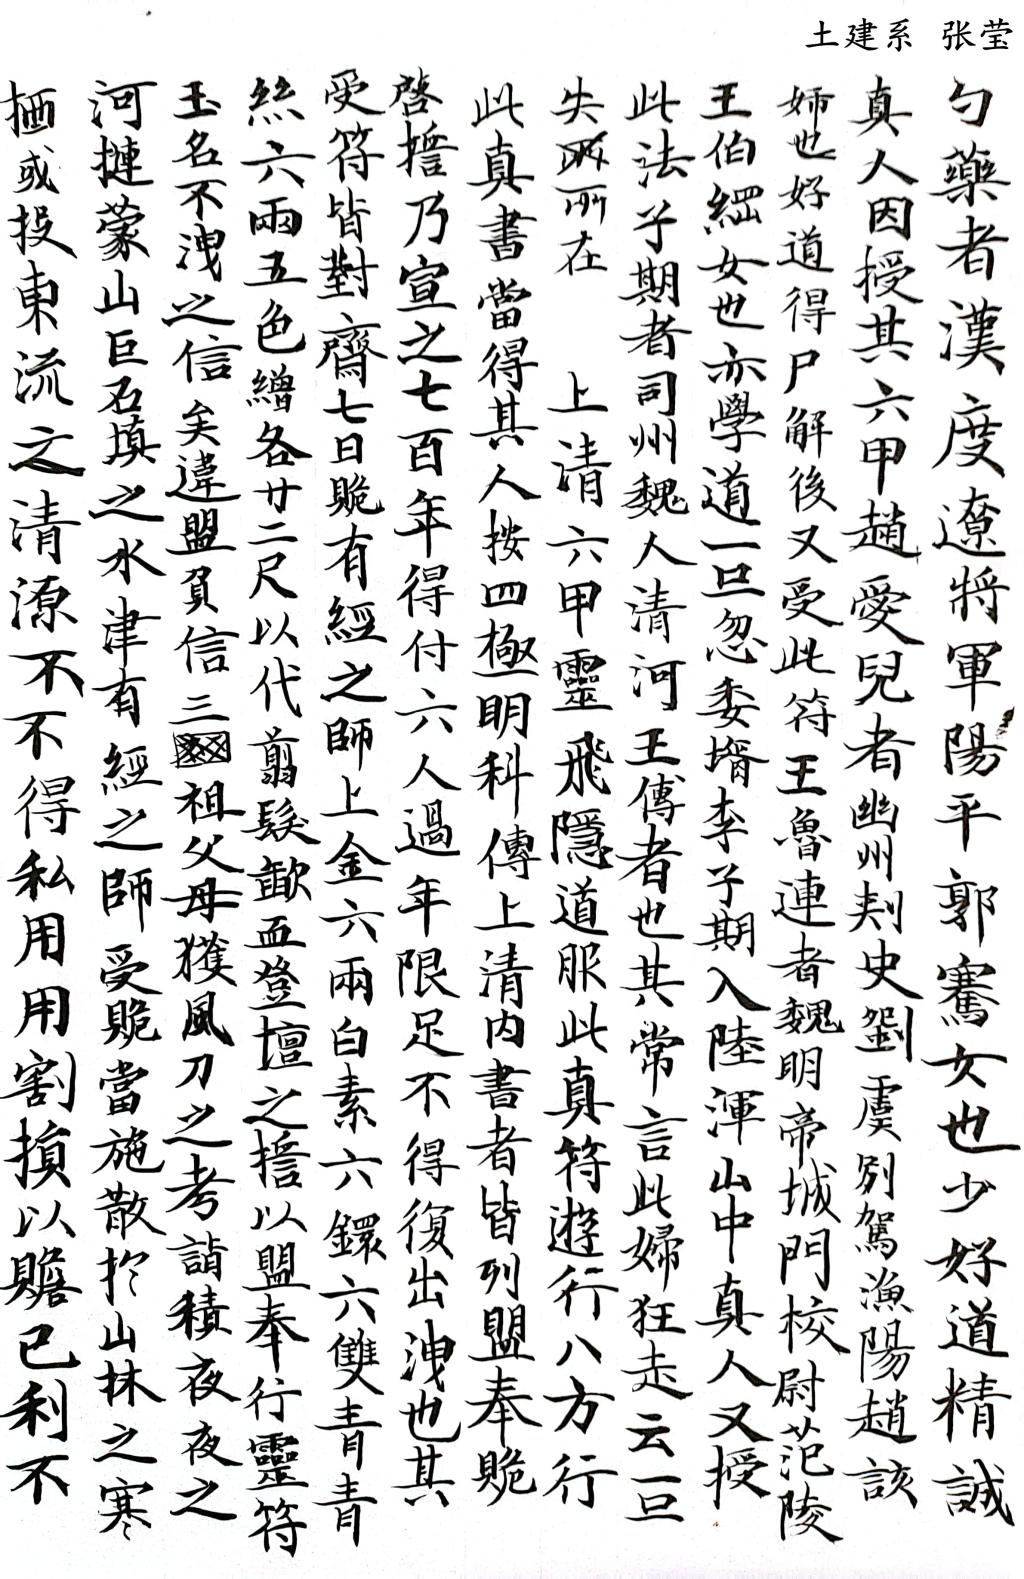 土建系 张莹
勺藥者漢度遼將軍陽平郭騫女也少好道精誠
真人因授其六甲趙愛兒者幽州刾史劉虞別駕漁陽趙該
姉也好道得尸解後又受此符王魯連者魏明帝城門校尉范陵
王伯綱女也亦學道一旦忽委壻李子期入陸渾山中真人又授
此法子期者司州魏人清河王傳者也其常言此婦狂走云一旦
失所在 上清六甲靈飛隱道服此真符遊行八方行
此真書當得其人按四極明科傳上清内書者皆列盟奉貺
啓擔乃宣之七百年得付六人過年限足不得復出洩也其
受符皆對齋七日貺有經之師上金六兩白素六鐶六雙青青
絲六兩五色繒各廿二尺以代翦髮歃血登壇之擔以盟奉行靈符
玉名不洩之信矣違盟負信三祖父母獲風刀之考詣積夜夜之
河摙蒙山巨石填之水津有經之師受貺當施散扵山林之寒
捴或投東流之清源不不得私用用割損以贍己利不